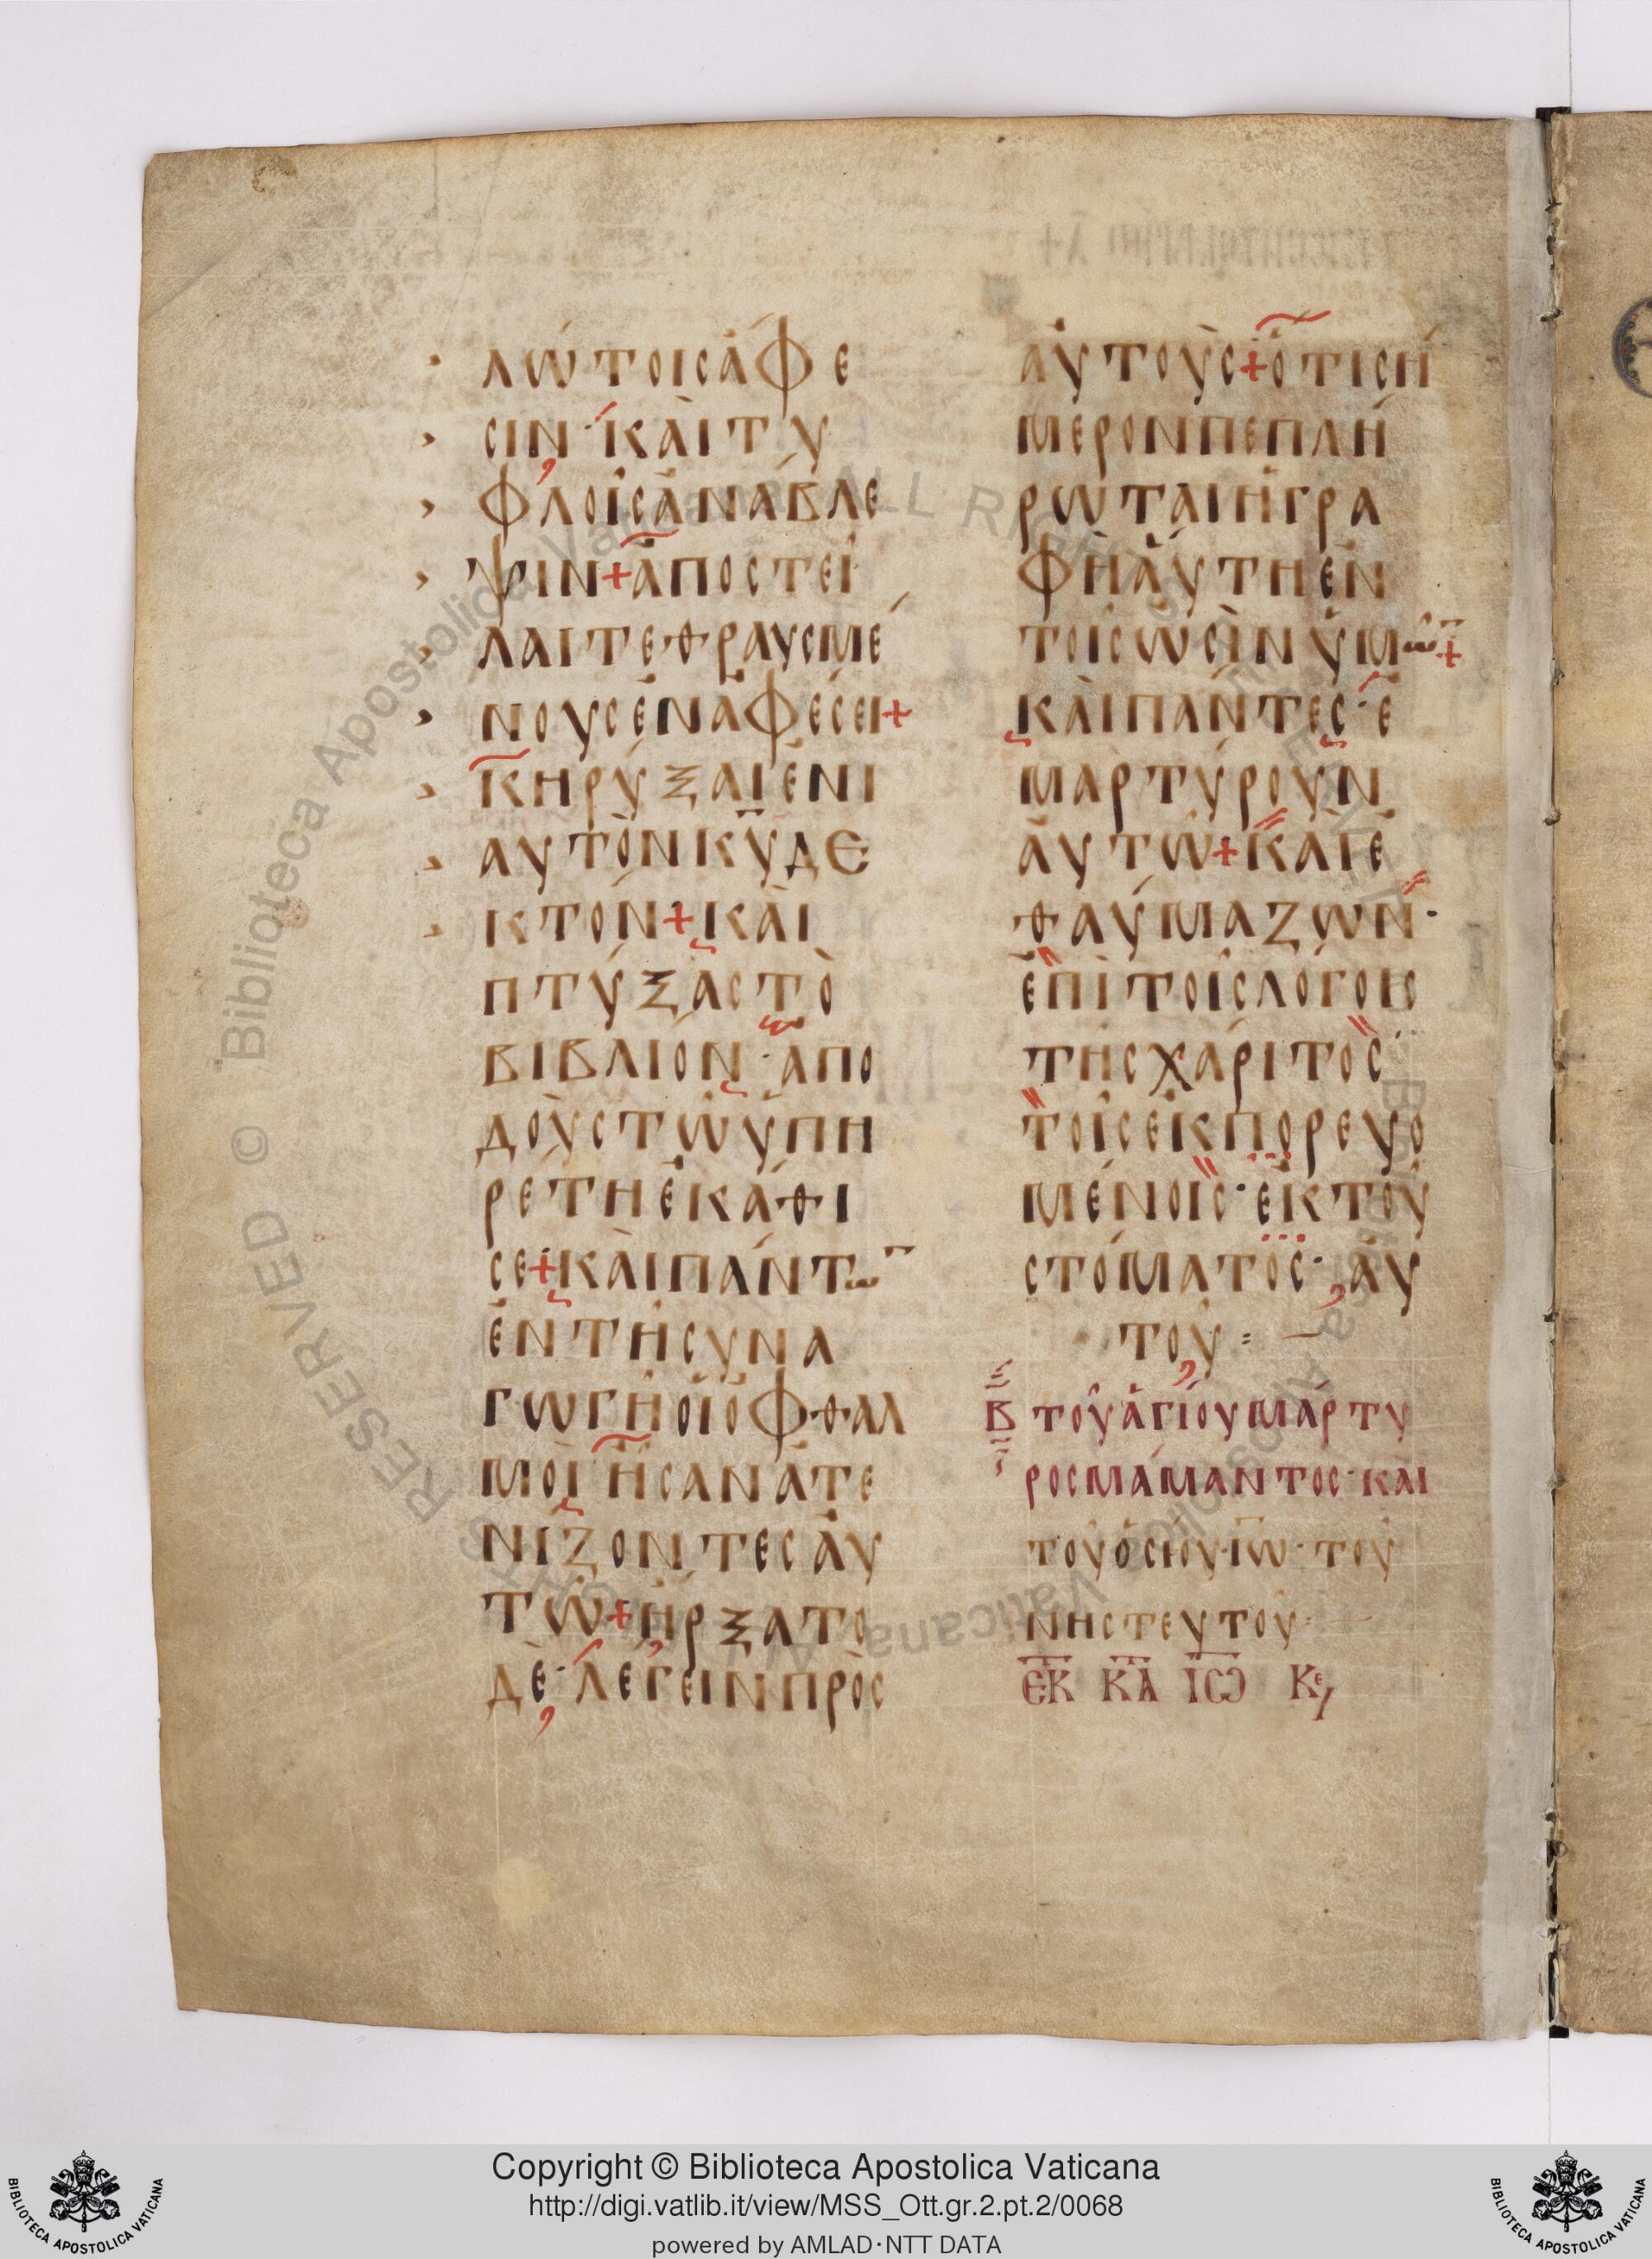 ΛΩΤΟΙΣΑΦΕ
ΣΙΝ· ΚΑΙΤΥ
ΦΛΟΙΣΑΝΑΒΛΕ
ΨΙΝ+ΑΠΟΣΤΕΙ
ΛΑΙΤΕΘΡΑΥΣΜΕ
ΝΟΥΣΕΝΑΦΕΣΕΙ+
ΚΗΡΥΞΑΙΕΝΙ
ΑΥΤΟΝΚΥΔΕ
ΚΤΟΝ+ΚΑΙ
ΠΤΥΞΑΣΤΟ
ΒΙΒΛΙΟΝ·ΑΠΟ
ΔΟΥΣΤΩΥΠΗ
ΡΕΤΗΕΚΑΘΙ
ΣΕ+ΚΑΙΠΑΝΤΩ
ΕΝΤΗΣΥΝΑ
ΓΩΓΗΟΙΟΦΘΑΛ
ΜΟΙΗΣΑΝΑΤΕ
ΝΙΖΟΝΤΕΣΑΥ
ΤΩ+ΗΡΞΑΤΟ
ΔΕ·ΛΕΓΕΙΝΠΡΟΣ
ΑΥΤΟΥΣ+ΟΤΙΣΗ
ΜΕΡΟΝΠΕΠΛΗ
ΡΩΤΑΙΗΓΡΑ
ΦΗΑΥΤΗΕΝ
ΤΟΙΣΩΣΙΝΥΜΩ+
ΚΑΙΠΑΝΤΕΣ·Ε
ΜΑΡΤΥΡΟΥΝ
ΑΥΤΩ+ΚΑΙΕ
ΘΑΥΜΑΖΩΝ·
ΕΠΙΤΟΙΣΛΟΓΟΙΣ
ΤΗΣΧΑΡΙΤΟΣ·
ΤΟΙΣΕΚΠΟΡΕΥΟ
ΜΕΝΟΙΣ·ΕΚΤΟΥ
ΣΤΟΜΑΤΟΣ·ΑΥ
ΤΟΥ = —
Β ΤΟΥΑΓΙΟΥΜΑΡΤΥ
ΡΟΣΜΑΜΑΝΤΟΣ·ΚΑΙ
ΤΟΥΟΣΙΟΥΙΩ·ΤΟΥ
ΝΗΣΤΕΥΤΟΥ
ΕΚ ΚΑ ΙΩ Κε
Copyright © Biblioteca Apostolica Vaticana
http://digi.vatlib.it/view/MSS_Ott.gr.2.pt.2/0068
powered by AMLAD·NTT DATA
BIBLIOTECA APOSTOLICA VATICANA
BIBLIOTECA APOSTOLICA VATICANA